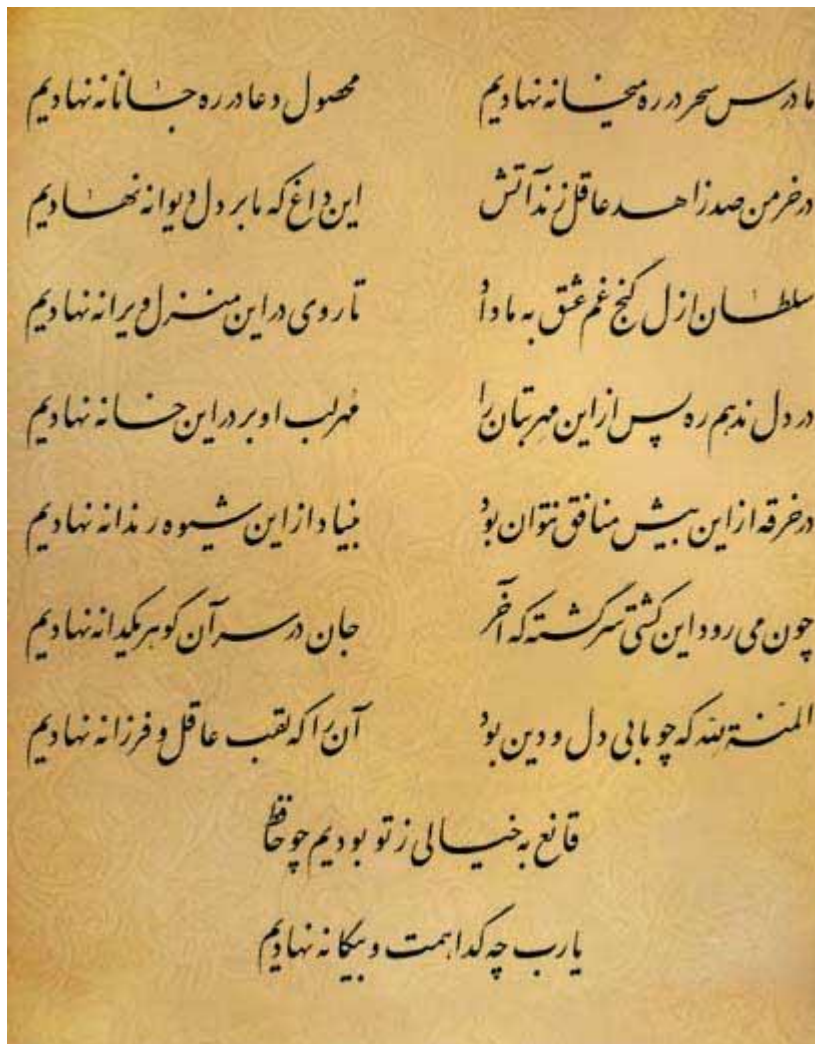 ما درس سحر در ره میخانه نهادیم محصول دعا در ره جانانه نهادیم
در خرمن صد زاهد عاقل زند آتش این داغ که ما بر دل دیوانه نهادیم
سلطان ازل گنج غم عشق به ما داد تا روی در این منزل ویرانه نهادیم
در دل ندهم ره پس از این مهر بتان را مهر لب او بر در این خانه نهادیم
در خرقه از این بیش منافق نتوان بود بنیاد از این شیوه رندانه نهادیم
چون می رود این کشتی سرگشته که آخر جان در سر آن گوهر یکدانه نهادیم
المنة لله که چو ما بی دل و دین بود آن را که لقب عاقل و فرزانه نهادیم
قانع به خیالی ز تو بودیم چو حافظ
یا رب چه گدا همت و بیگانه نهادیم